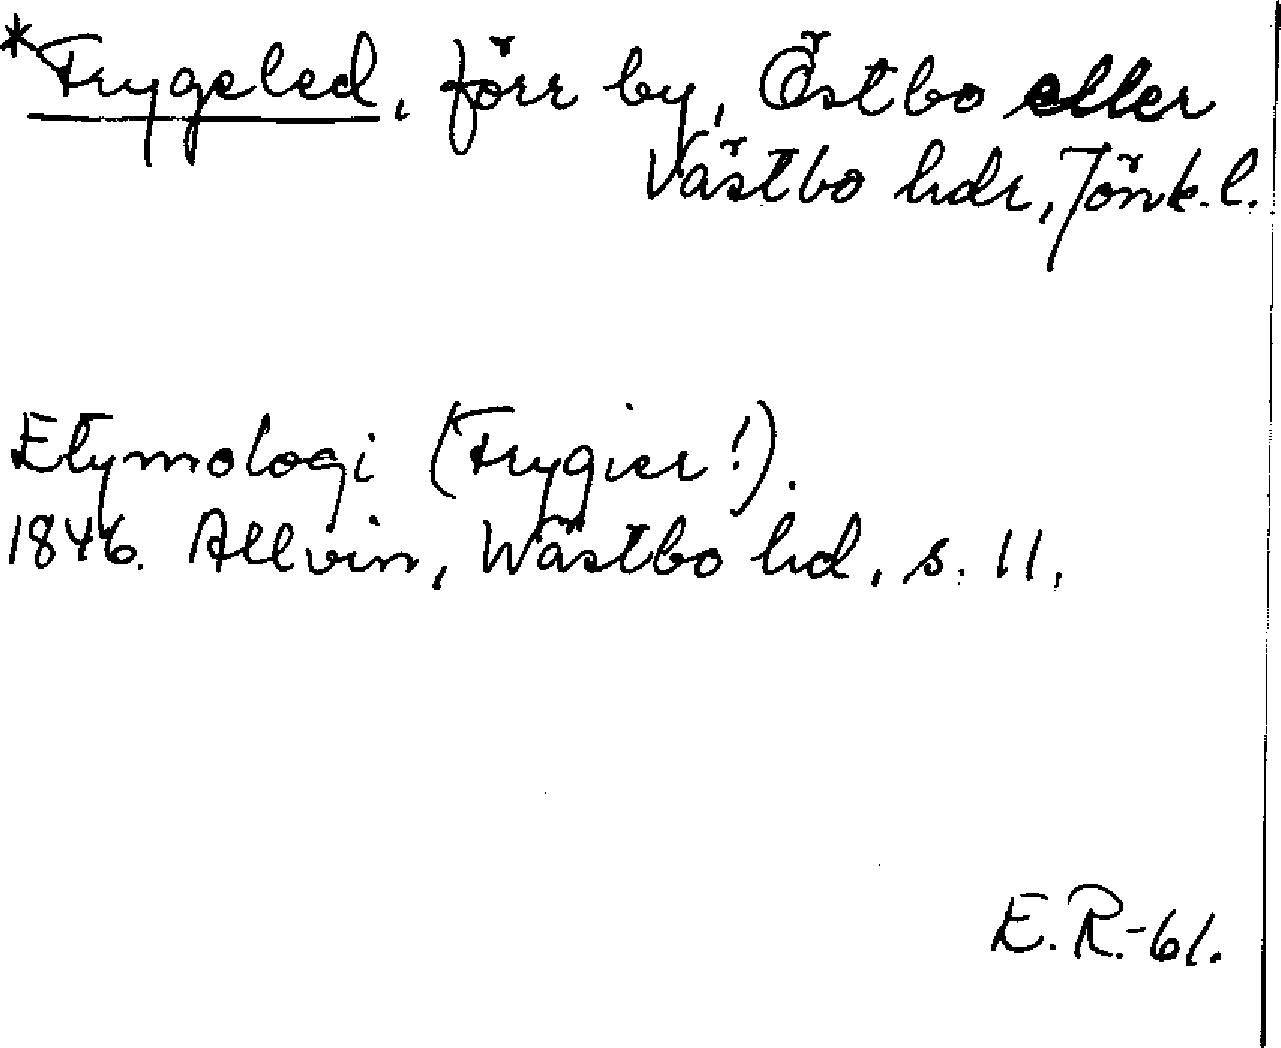 *Frygeled, förr by, Östbo eller
Västbo hdr, Jönk. l.
Etymologi (Frygier!).
1846. Allvin, Wästbo hd, s. 11.
E.R.-61.